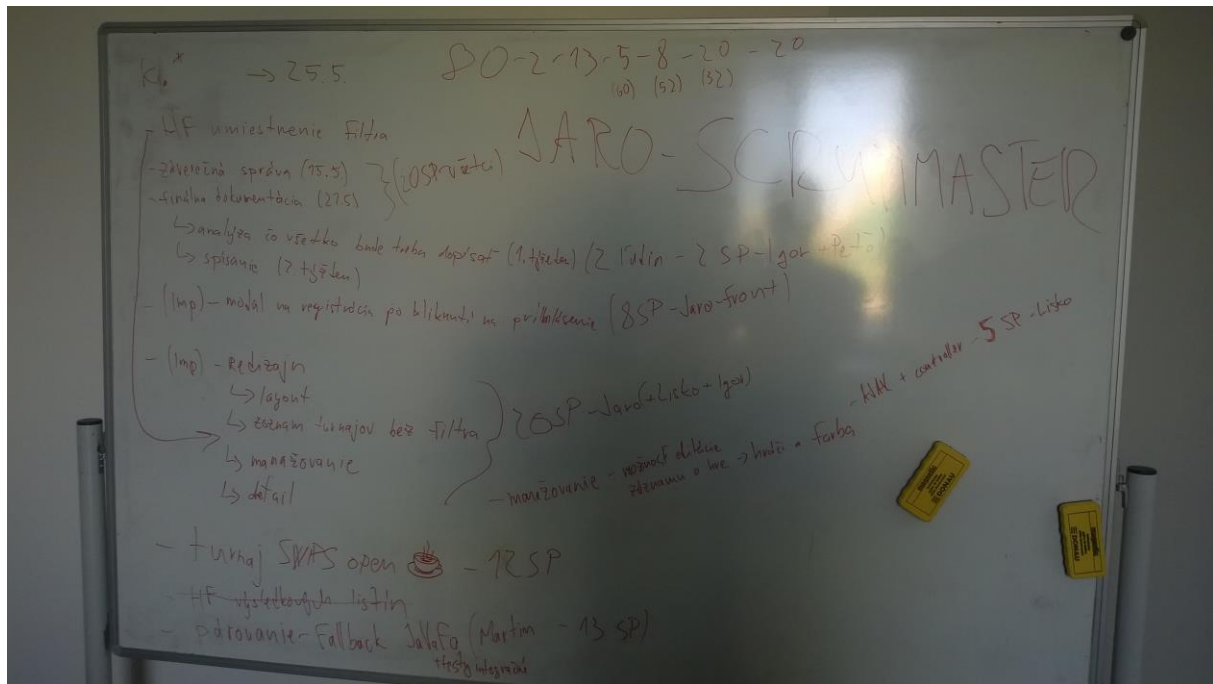 → 25.5.
80-2-13-5-8-20-20
(60) (52) (32)
JARO-SCRUMMASTER
HF umiestnenie filtra
- záverečná správa (15.5)
- finálna dokumentácia (21.5)
(20SP všetci)
↳ analýza čo všetko bude treba dopísať (1. týžden) (2 ľudin - 2 SP - Igor + Peťo)
↳ spísanie (2. týžden)
- (Imp) - modal na registrácia po kliknutí na prihlásenie (8SP - Jaro-front)
- (Imp) - Redizajn
↳ layout
↳ zoznam turnajov bez filtra
↳ manažovanie
↳ detail
20SP - Jaro(+Lisko + Igor)
- manžovanie - možnosť
záznamu o hre → hráči a farba - AJAX + controller - 5 SP - Lisko
- turnaj SWAS open - 12 SP
- HF výsledkových listín
- párovanie - Fallback JaVaFo (Martin - 13 SP)
+testy integračné
DONAU
DONAU